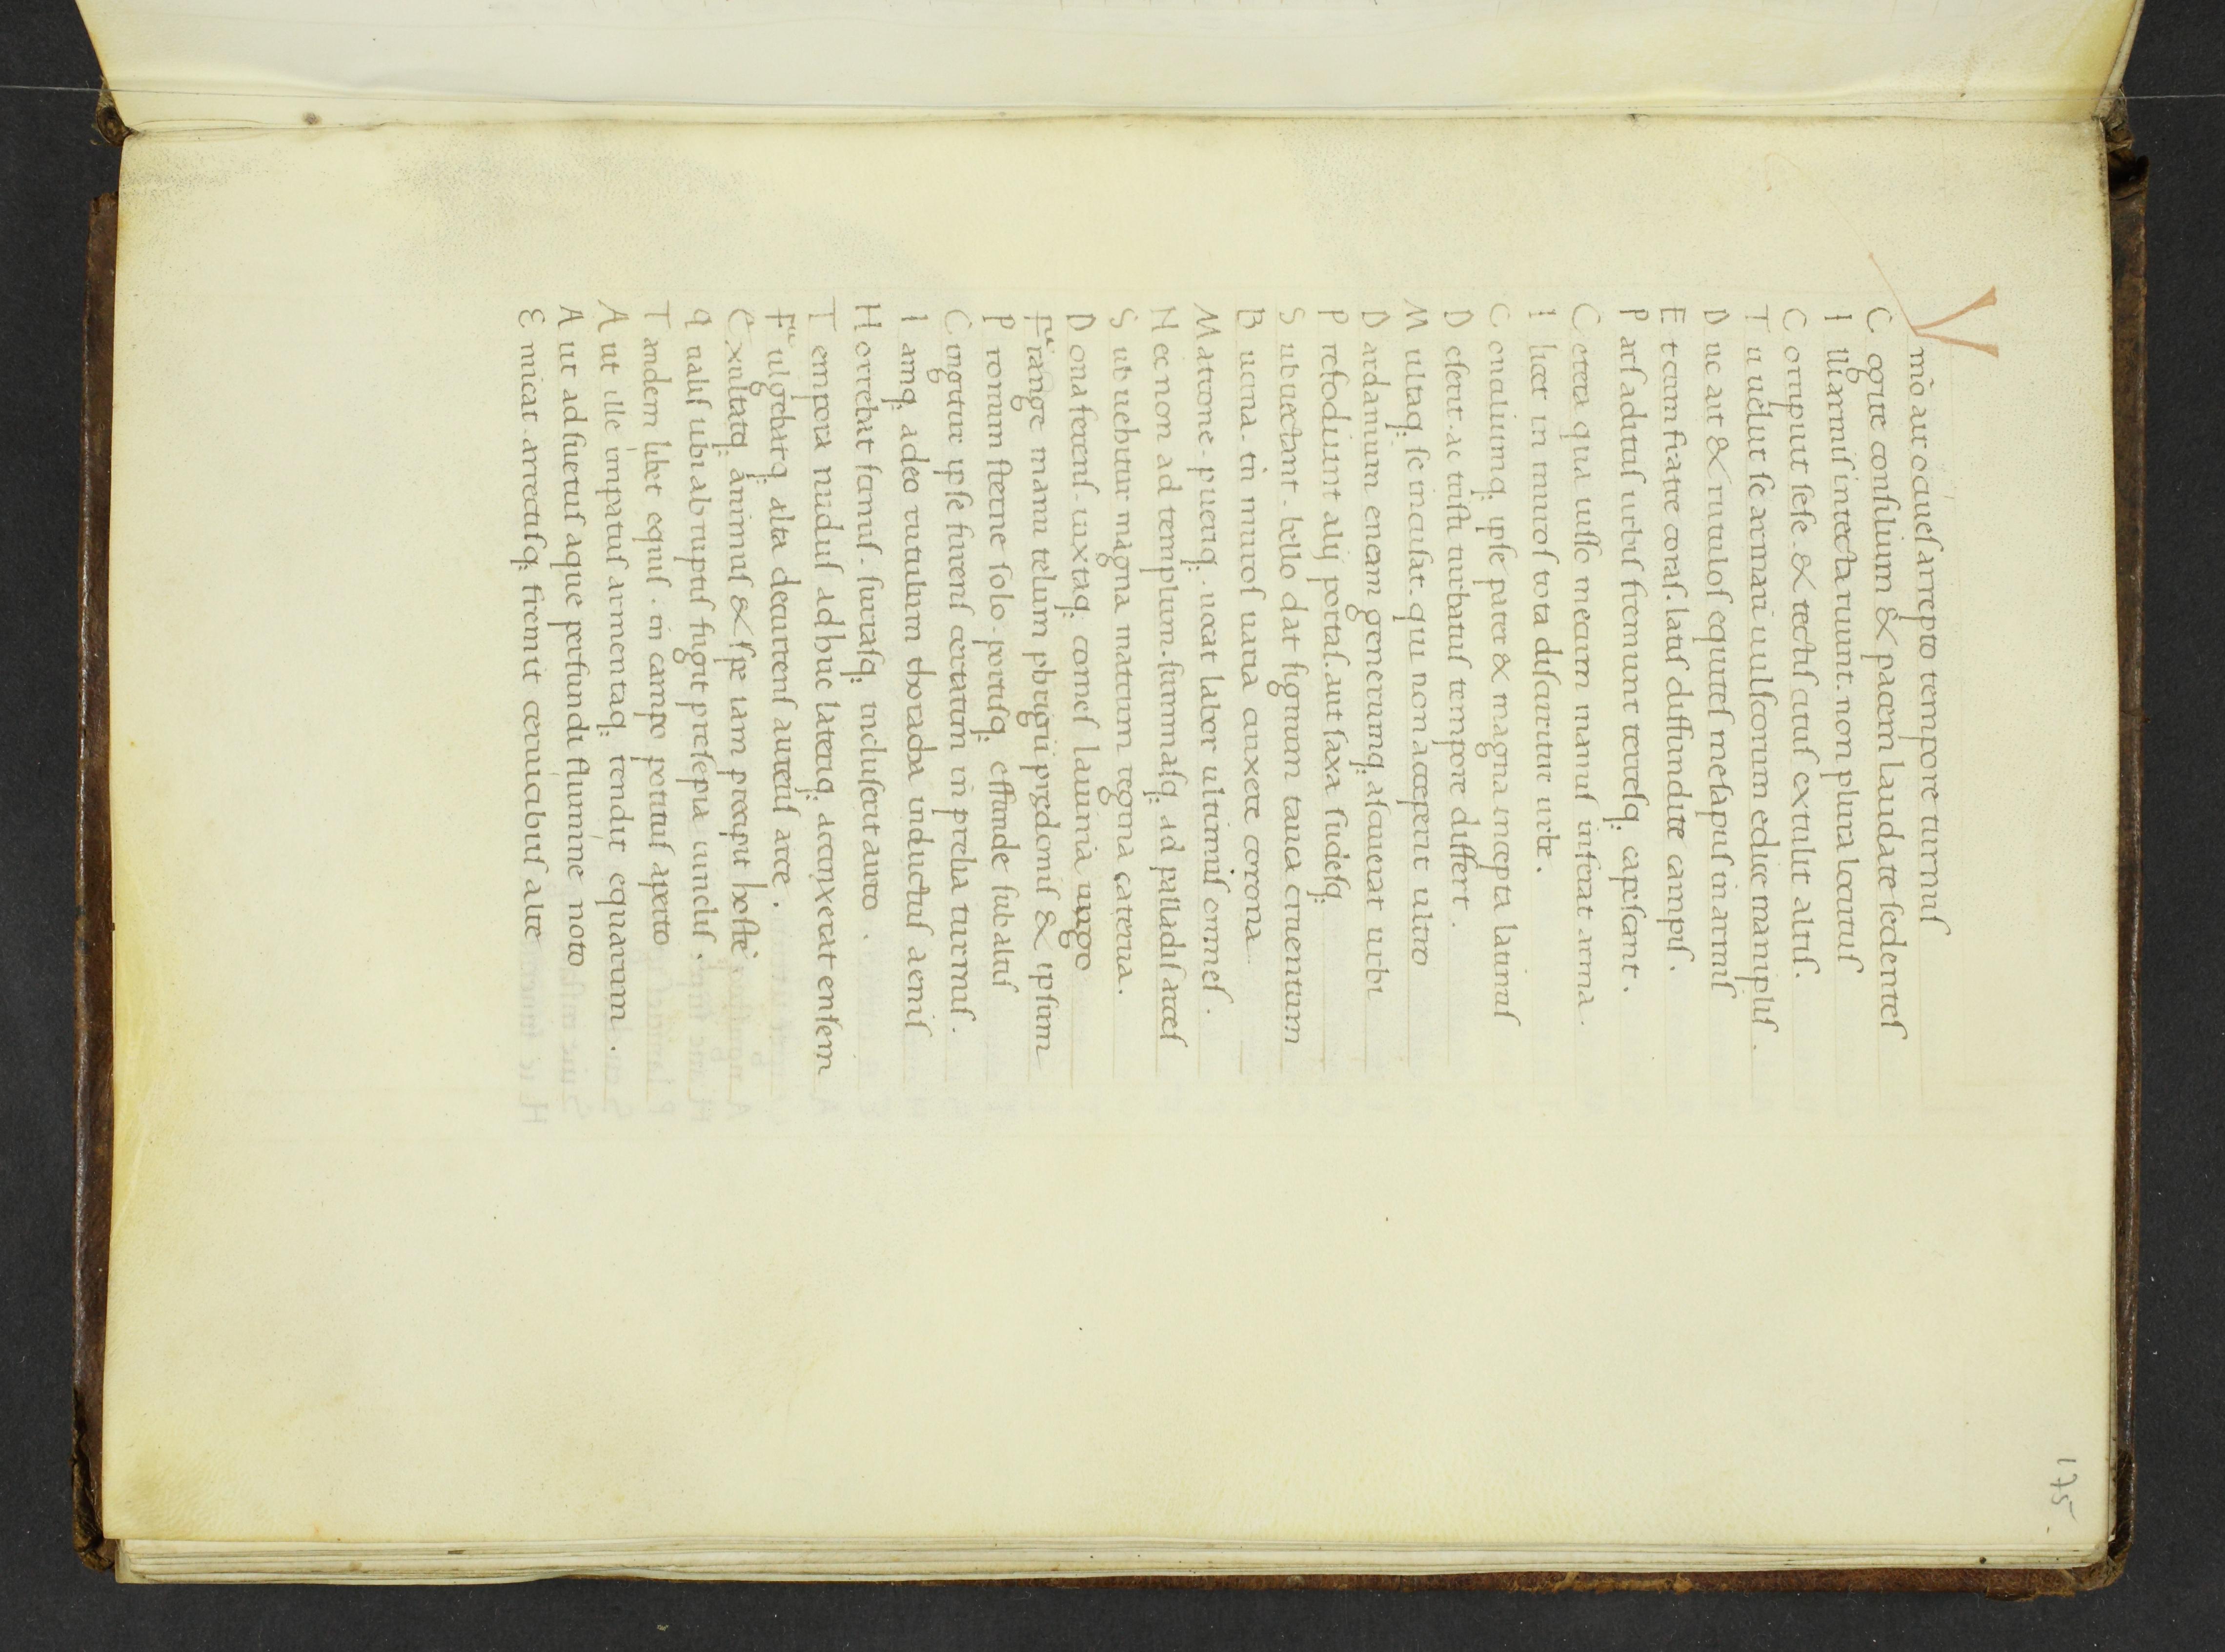 175.
Ymo ait o ciues arrepto tempore turnus
Cogite consilium & pacem laudate sedentes
Illi armis in recta ruunt. non plura locutus
Corpuit sese. & tectis citus extulit altis.
Tu uelut se armari uulscorum edice maniplis.
Duc ait & rutulos equites mesapus in armis
Et cum fratre coras. latis diffundite campis.
Pars aditus urbis fremunt terresq; capescant.
Cetera qua iusso mecum manus inferat arma.
Ilicet in muros tota discuritur urbe.
Conciliumq; ipse pater & magna incepta latinus
Deserit. ac tristi turbatus tempore differt.
Multaq; se incusat. qui non acceperit ultro
Dardanium eneam generumq; asciuerat urbi
Prefodiunt alij portas. aut saxa sudesq;
Subuectant. bello dat signum rauca cruentum
Bucina. tin muros uaria cinxere corrona
Matrone. pueriq;. uocat labor ultimus omnes.
Nec non ad templum. summasq; ad palladis arces
Subuehitur magna matrum regina caterua.
Dona ferens. iuxtaq; comes lauinia uirgo
Frange manu telum phrigii predonis & ipsum
Pronum sterne solo. portisq; effunde sub altis
Cingitur ipse furens certatim in prelia turnus.
Iamq; adeo rutulum thoracha inductus aenis
Horrebat scamis. surasq; incluserat auro.
Tempora nudus adhuc lateriq; accinxerat ensem
Fulgebatq; alta decurrens aureus arce.
Exultatq; animis & spe iam precipit hostem
qualis ubi abruptis fugit presepia uinclis.
Tandem liber equus. in campo potitus aperto
Aut ille in patus armentaq; tendit equarum.
Aut adsuetus aque perfundi flumine noto
Emicat. arrectisq; fremit ceruicibus alte